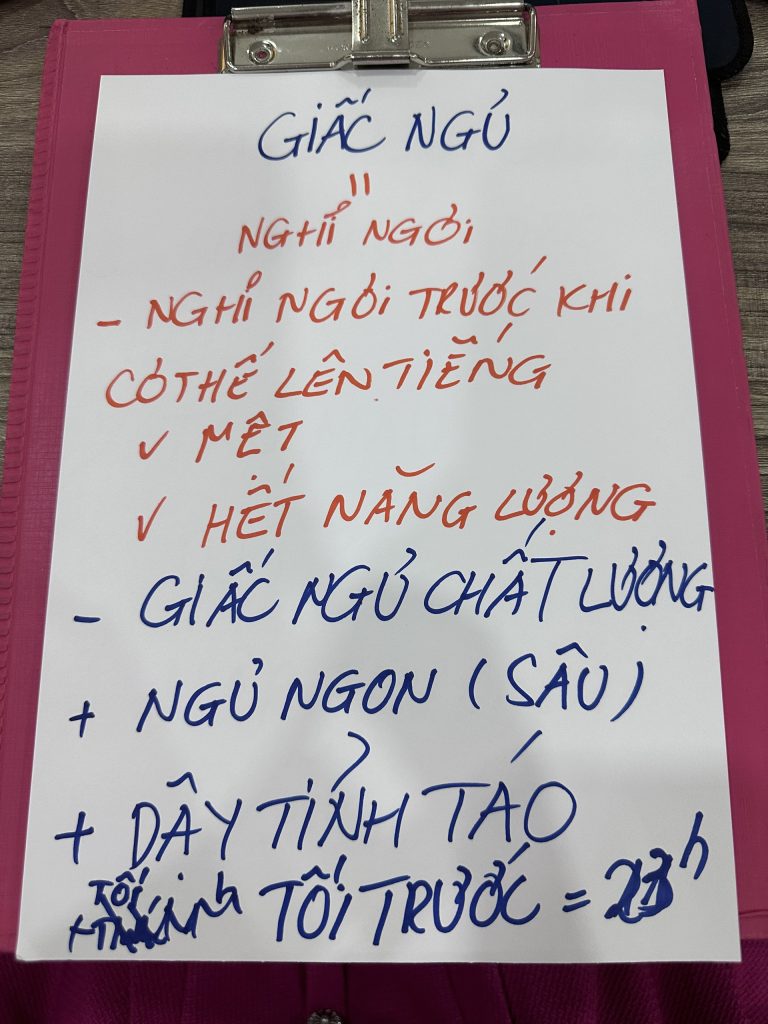 GIẤC NGỦ
=
NGHỈ NGƠI
- NGHỈ NGƠI TRƯỚC KHI
CƠ THẾ LÊN TIẾNG
✓ MỆT
✓ HẾT NĂNG LƯỢNG
- GIẤC NGỦ CHẤT LƯỢNG
+ NGỦ NGON (SÂU)
+ DẬY TỈNH TÁO
TỐI
TỐI TRƯỚC = 23h